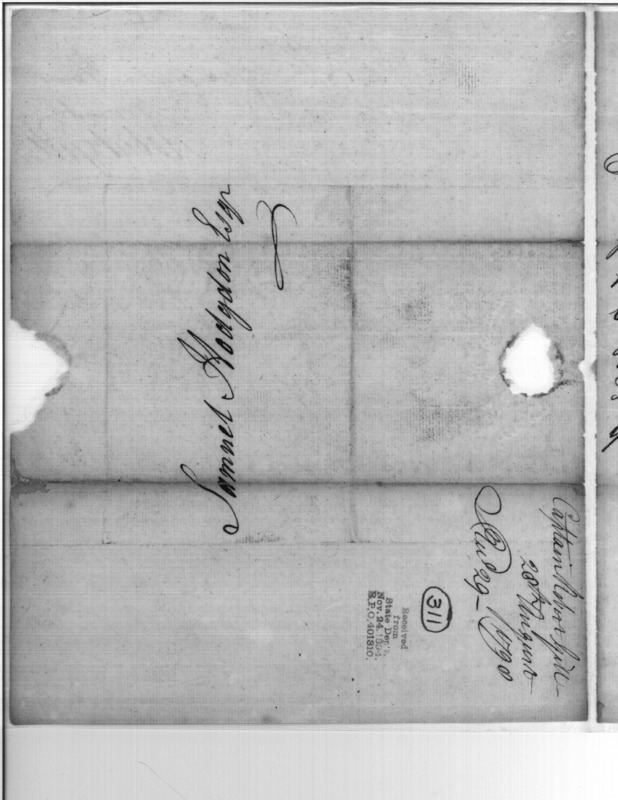 Samuel Hodgdon Esqr
Captain
28th August
29 - 1790
311
Received
from
State Dep't.
Nov. 24, 1894.
R.P.O. 401810.